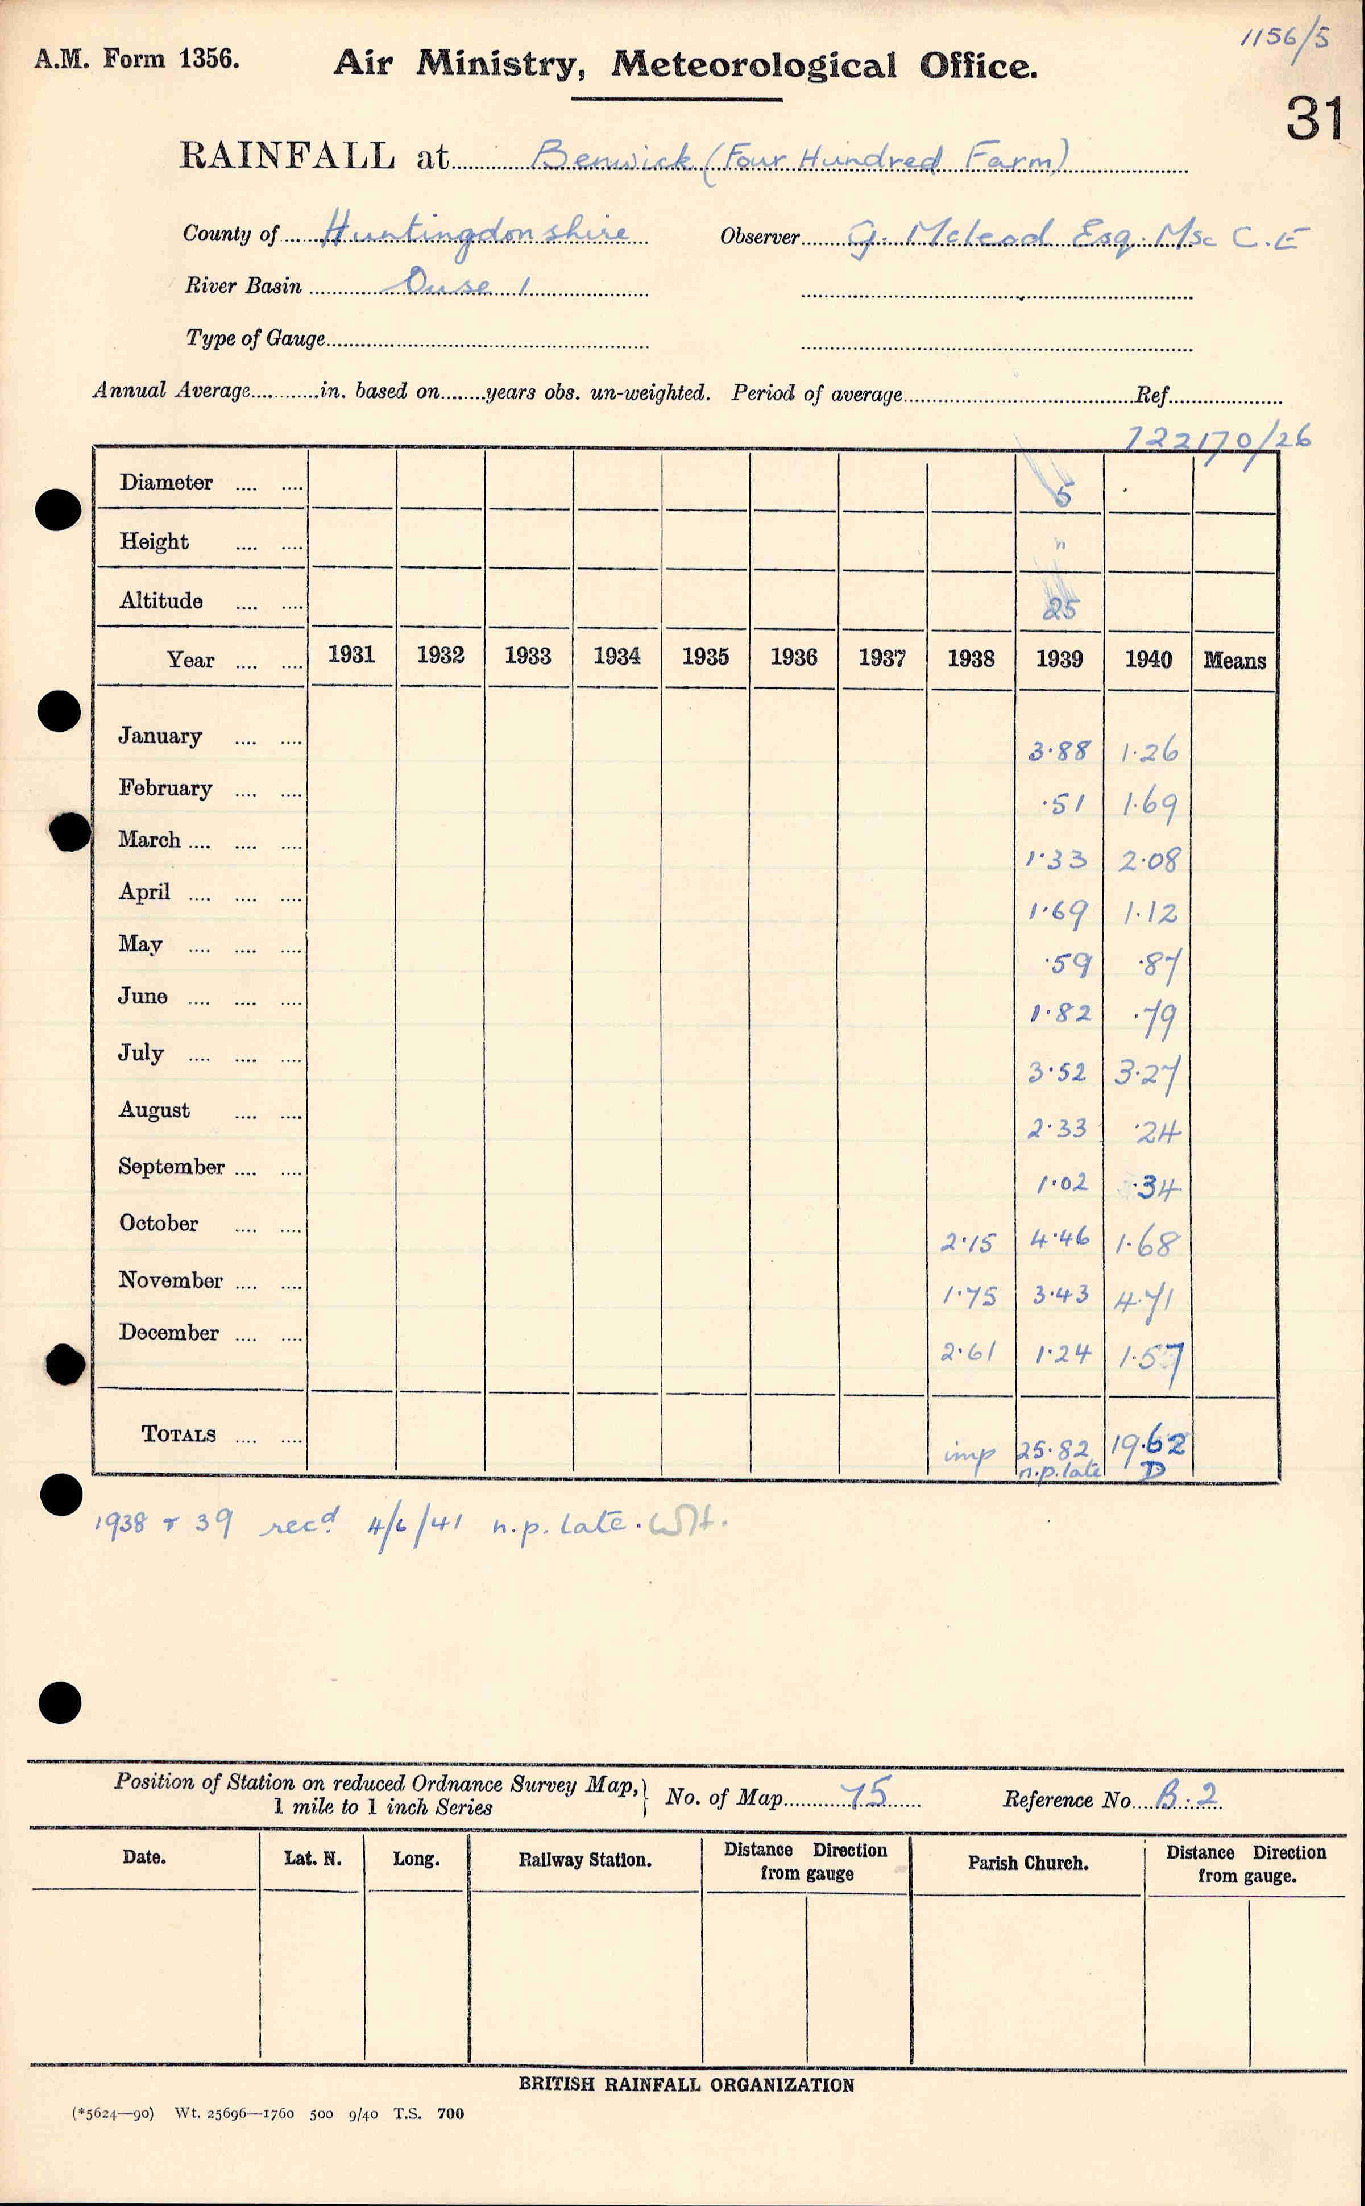 1156/5
A.M. Form 1356. Air Ministry, Meteorological Office.
31
RAINFALL at Benwick (Four Hundred Farm)
County of Huntingdonshire Observer G. Mcleod Esq. Msc C.E
River Basin Ouse 1
Type of Gauge
Annual Average in. based on years obs. un-weighted. Period of average Ref
722170/26
Diameter 5
Height "
Altitude 25
Year 1931 1932 1933 1934 1935 1936 1937 1938 1939 1940 Means
January 3.88 1.26
February .51 1.69
March 1.33 2.08
April 1.69 1.12
May .59 .87
June 1.82 .79
July 3.52 3.27
August 2.33 .24
September 1.02 .34
October 2.15 4.46 1.68
November 1.75 3.43 4.71
December 2.61 1.24 1.57
TOTALS imp 25.82 19.62
n.p.late D
1938 + 39 recd 4/6/41 n.p. late.
Position of Station on reduced Ordnance Survey Map, } No. of Map 75 Reference No. B.2
1 mile to 1 inch Series
Date. Lat. N. Long. Railway Station. Distance Direction from gauge Parish Church. Distance Direction from gauge.
BRITISH RAINFALL ORGANIZATION
(*5624—90) Wt. 25696—1760 500 9/40 T.S. 700